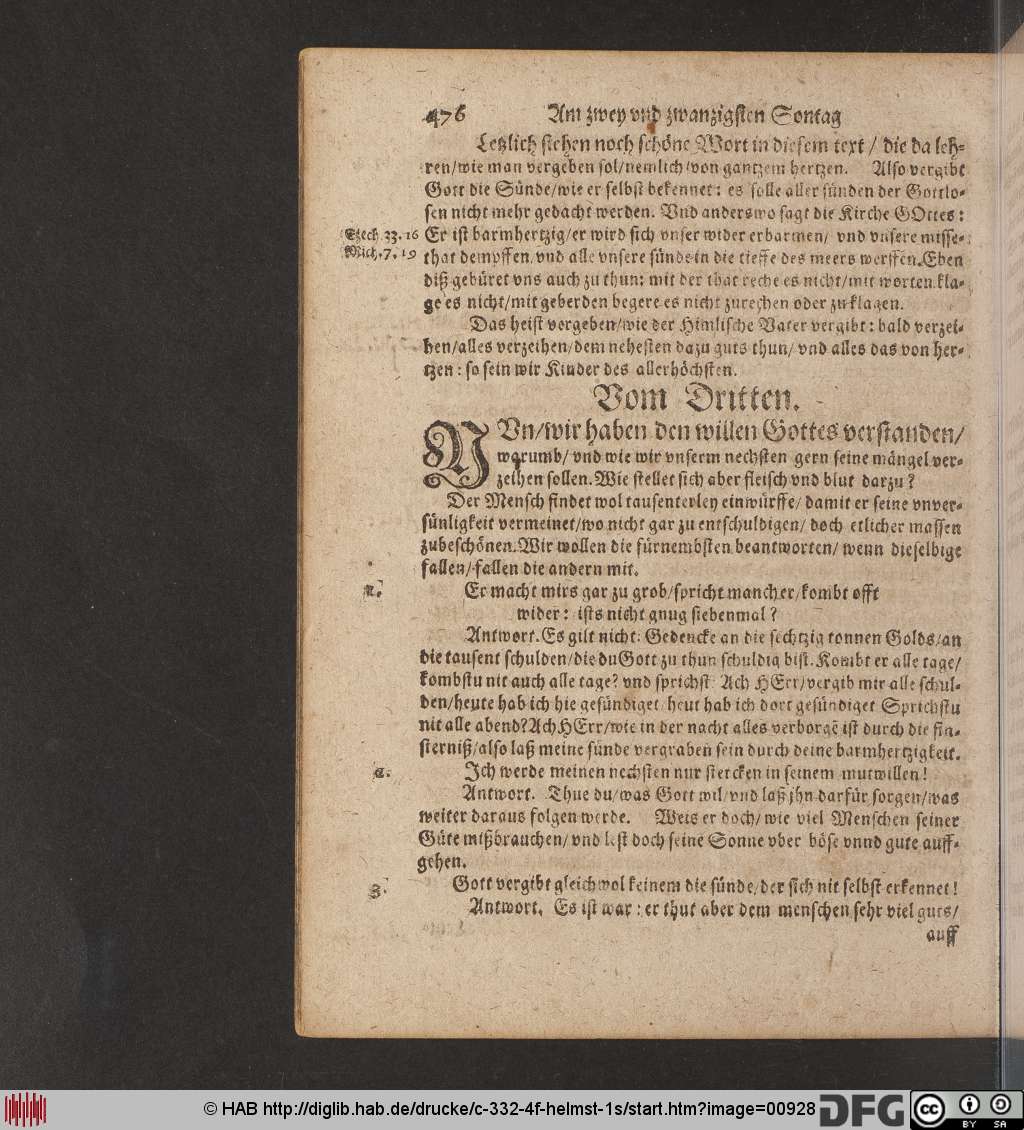 476 Am zwey vnd zwanzigsten Sontag
Letzlich stehen noch schöne Wort in diesem text / die da leh-
ren/wie man vergeben sol/nemlich/von gantzem hertzen. Also vergibt
Gott die Sünde/wie er selbst bekennet: es solle aller sünden der Gottlo-
sen nicht mehr gedacht werden. Vnd anderswo sagt die Kirche GOttes:
Ezech. 33. 16 Er ist barmhertzig/er wird sich vnser wider erbarmen/ vnd vnsere misse-
Mich. 7. 19 that dempffen/vnd alle vnsere sünde in die tieffe des meers werffen. Eben
diß gebüret vns auch zu thun: mit der that reche es nicht/mit worten kla-
ge es nicht/mit geberden begere es nicht zurechen oder zu klagen.
Das heist vergeben/wie der Himlische Vater vergibt: bald verzei-
hen/alles verzeihen/dem nehesten dazu guts thun/ vnd alles das von her-
tzen: so sein wir Kinder des allerhöchsten.
Vom Dritten.
NVn/wir haben den willen Gottes verstanden/
warumb/ vnd wie wir vnserm nechsten gern seine mängel ver-
zeihen sollen. Wie stellet sich aber fleisch vnd blut darzu?
Der Mensch findet wol tausenterley einwürffe/ damit er seine vnver-
sünligkeit vermeinet/wo nicht gar zu entschuldigen/ doch etlicher massen
zubeschönen. Wir wollen die fürnembsten beantworten/ wenn dieselbige
fallen/ fallen die andern mit.
1. Er macht mirs gar zu grob/spricht mancher/kombt offt
wider: ists nicht gnug siebenmal?
Antwort. Es gilt nicht: Gedencke an die sechtzig tonnen Golds/an
die tausent schulden/die du Gott zu thun schuldig bist. Kombt er alle tage/
kombstu nit auch alle tage? vnd sprichst: Ach HErr/vergib mir alle schul-
den/heute hab ich hie gesündiget/heut hab ich dort gesündiget Sprichstu
nit alle abend? Ach HErr/wie in der nacht alles verborgē ist durch die fin-
sterniß/also laß meine sünde vergraben sein durch deine barmhertzigkeit.
2. Ich werde meinen nechsten nur stercken in seinem mutwillen!
Antwort. Thue du/was Gott wil/vnd laß jhn darfür sorgen/was
weiter daraus folgen werde. Weis er doch/ wie viel Menschen seiner
Güte mißbrauchen/ vnd lest doch seine Sonne vber böse vnnd gute auff-
gehen.
3. Gott vergibt gleichwol keinem die sünde/der sich nit selbst erkennet!
Antwort. Es ist war: er thut aber dem menschen sehr viel guts/
auff
© HAB http://diglib.hab.de/drucke/c-332-4f-helmst-1s/start.htm?image=00928 DFG cc BY SA